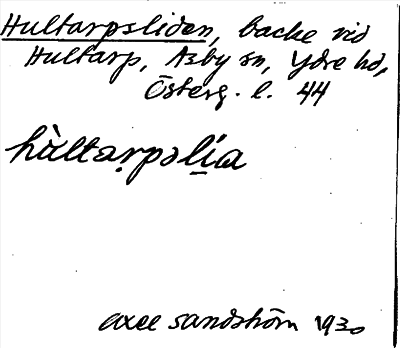 Hultarpsliden, backe vid
Hultarp, Asby sn, Ydre hd,
Österg. l. 44
hùltaṛpsəlía
Axel Sandström 1930